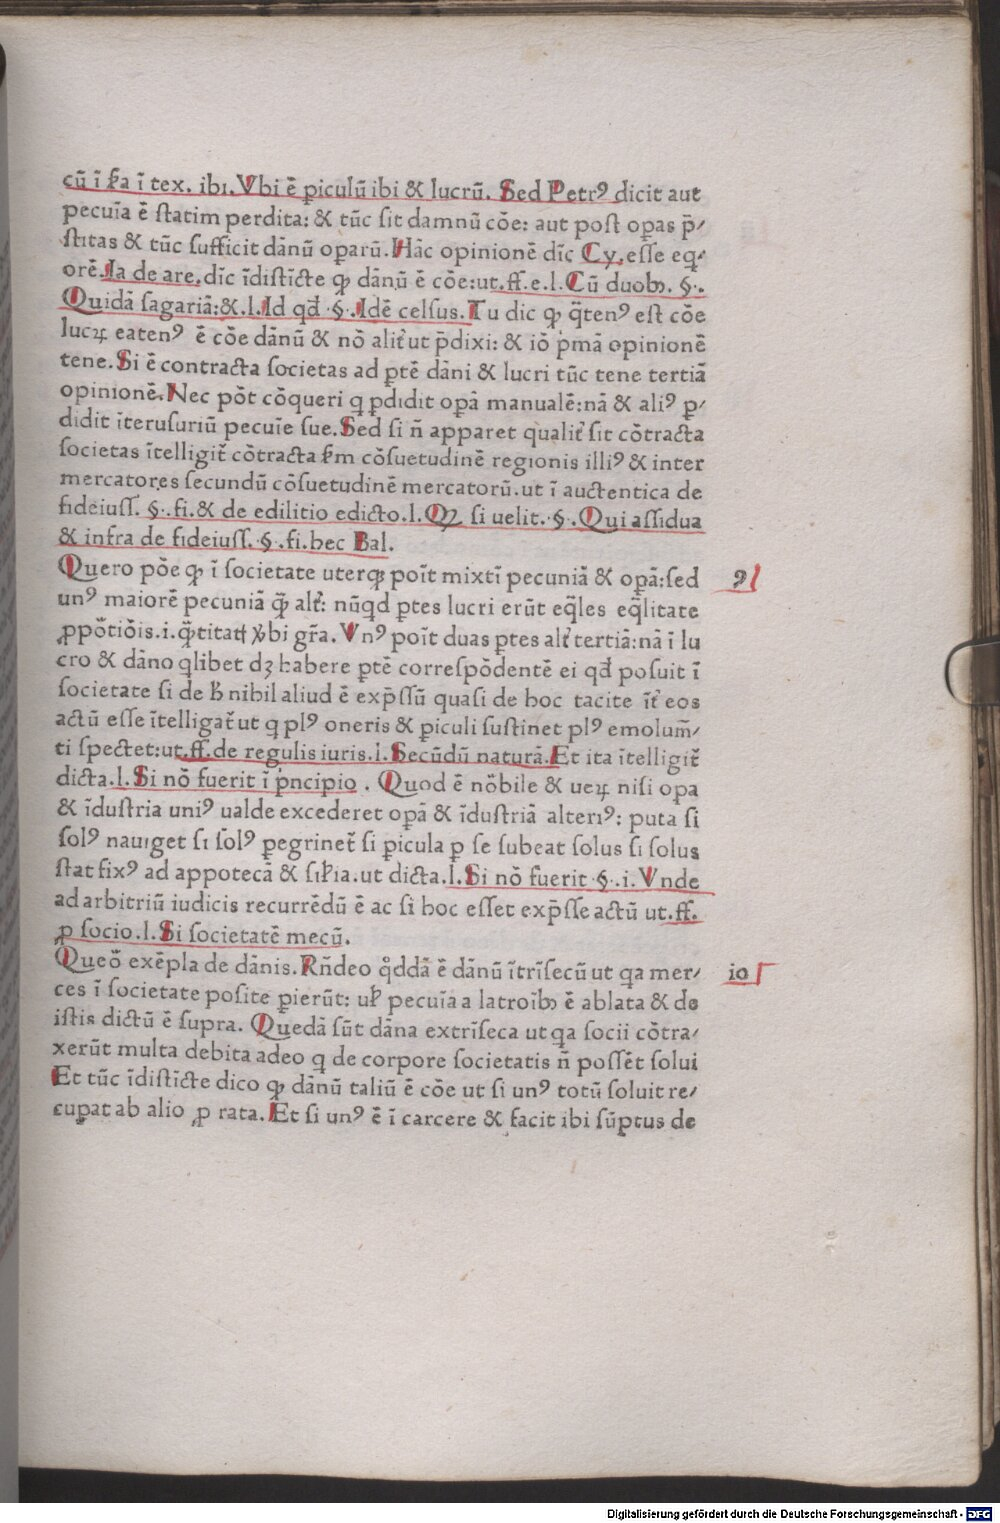 cū ī ẜa ī tex. ibi. Vbi ē ꝑiculū ibi & lucrū. Sed Petrꝰ dicit aut
pecuīa ē ſtatim perdita: & tūc ſit damnū cōe: aut poſt oꝑas p̄⸗
ſtitas & tūc ſufficit dānū oꝑarū. Hāc opinionē dīc Cy. eſſe eq⸗
orē. Ia de are. dīc īdiſtīcte ꝙ dānū ē cōe: ut. ff. e. l. Cū duobꝫ. §.
Quidā ſagariā: & .l. Id qđ §. Idē celſus. Tu dic ꝙ q̄tenꝰ eſt cōe
lucꝝ eatenꝰ ē cōe dānū & nō alit᷑ ut p̄dixi: & iō pͥmā opinionē
tene. Si ē contracta ſocietas ad ꝑtē dāni & lucri tūc tene tertiā
opinionē. Nec pōt cōqueri q ꝑdidit oꝑā manualē: nā & aliꝰ ꝑ⸗
didit īteruſuriū pecuīe ſue. Sed ſi n̄ apparet qualit᷑ ſit cōtracta
ſocietas ītelligit᷑ cōtracta ẜm cōſuetudinē regionis illiꝰ & inter
mercatores ſecundū cōſuetudinē mercatorū. ut ī auctentica de
fideiuſſ. §. fi. & de edilitio edicto. l. Qꝫ ſi uelit. §. Qui aſſidua
& infra de fideiuſſ. §. fi. hec Bal.
Quero pōe ꝙ ī ſocietate uterqꝫ poīt mixtī pecuniā & oꝑā: ſed
unꝰ maiorē pecuniā q̄ꝫ alt᷑: nūqd ꝑtes lucri erūt eq̄les eq̄litate
ꝓpōtiōis. i. q̄titatꝭ v̓bi gr̄a. Vnꝰ poīt duas ꝑtes alt᷑ tertiā: nā ī lu
cro & dāno qlibet dꝫ habere ꝑtē correſpōdentē ei qđ poſuit ī
ſocietate ſi de ħ nihil aliud ē exp̄ſſū quaſi de hoc tacite īt᷑ eos
actū eſſe ītelligat᷑ ut q plꝰ oneris & ꝑiculi ſuſtinet plꝰ emolum̄⸗
ti ſpectet: ut. ff. de regulis iuris. l. Secūdū naturā. Et ita ītelligit᷑
dicta. l. Si nō fuerit ī pͥncipio . Quod ē nōbile & ueꝝ niſi oꝑa
& īduſtria uniꝰ ualde excederet oꝑā & īduſtriā alteriꝰ: puta ſi
ſolꝰ nauiget ſi ſolꝰ ꝑegrinet᷑ ſi ꝑicula ꝑ ſe ſubeat ſolus ſi ſolus
ſtat fixꝰ ad appotecā & ſiłia. ut dicta. l. Si nō fuerit §. i. Vnde
ad arbitriū iudicis recurrēdū ē ac ſi hoc eſſet exp̄ſſe actū ut. ff.
ꝓ ſocio. l. Si ſocietatē mecū.
Queō exēpla de dānis. Rn̄deo qͦddā ē dānū ītrīſecū ut qa mer⸗
ces ī ſocietate poſite ꝑierūt: uł pecuīa a latroībꝫ ē ablata & de
iſtis dictū ē ſupra. Quedā ſūt dāna extrīſeca ut qa ſocii cōtra⸗
xerūt multa debita adeo q de corpore ſocietatis n̄ poſſēt ſolui
Et tūc īdiſtīcte dico ꝙ dānū taliū ē cōe ut ſi unꝰ totū ſoluit re⸗
cuꝑat ab alio ꝓ rata. Et ſi unꝰ ē ī carcere & facit ibi ſūptus de
9
io
Digitalisierung gefördert durch die Deutsche Forschungsgemeinschaft - DFG